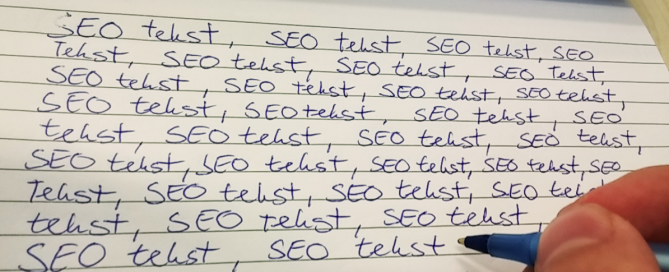 SEO tekst, SEO tekst, SEO tekst, SEO
Tekst, SEO tekst, SEO tekst, SEO Tekst,
SEO tekst, SEO tekst, SEO tekst, SEO tekst,
SEO tekst, SEO tekst, SEO tekst, SEO
tekst, SEO tekst, SEO tekst, SEO tekst,
SEO tekst, SEO tekst, SEO tekst, SEO tekst, SEO
Tekst, SEO tekst, SEO tekst, SEO
tekst, SEO tekst, SEO tekst
SEO tekst, SEO tekst